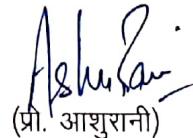 Ashu Rani
(प्रो. आशुरानी)